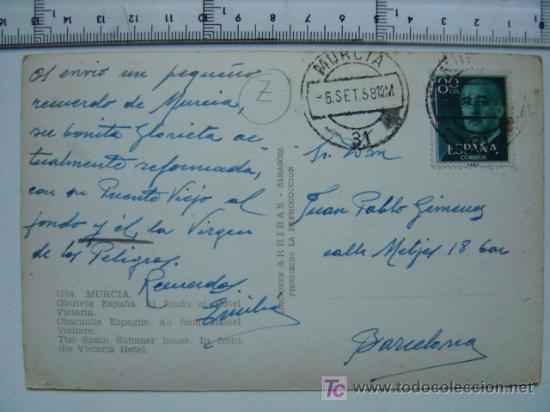 Os envio un pequeño
recuerdo de Murcia,
su bonita Glorieta ac-
tualmente reformada,
con su Puente Viejo al
fondo y él, la Virgen
de los Peligros.
Recuerdos.
Emilia
1104. MURCIA.
Glorieta España. Al fondo el Hotel
Victoria.
Charmille Espagne. Au fond Hotel
Victoire.
The Spain Summer house. In front
the Victoria Hotel.
Z
EDICIONES ARRIBAS - ZARAGOZA
PROHIBIDA LA REPRODUCCION
MURCIA
-6.SET.58 12M
31
80 CTS
ESPAÑA
CORREOS
Sr. Don
Juan Pablo Gimenez
calle 18
Barcelona
todocoleccion